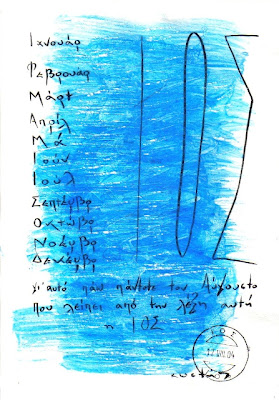 Ιχνουάρ
Φεβρουαρ
Μάρτ
Απρίλ
Μά
Ιούν
Ιούλ
Σεπτέμβρ
Οκτώβρ
Νοέμβρ
Δεκέμβρ
γι' αυτό πάω πάντοτε τον Αύγουστο
που λείπει από την λέξη αυτή
η ΙΟΣ
ΙΟΣ